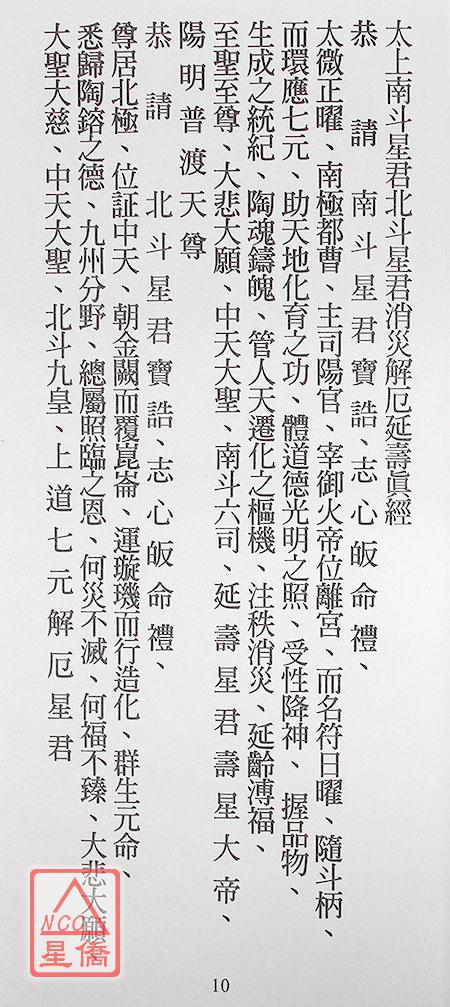 太上南斗星君北斗星君消災解厄延壽眞經
恭請南斗星君寶誥、志心皈命禮、
太微正曜、南極都曹、主司陽官、宰御火帝位離宮、而名符日曜、隨斗柄、
而環應七元、助天地化育之功、體道德光明之照、受性降神、握品物、
生成之統紀、陶魂鑄魄、管人天遷化之樞機、注秩消災、延齡溥福、
至聖至尊、大悲大願、中天大聖、南斗六司、延壽星君壽星大帝、
陽明普渡天尊
恭請北斗星君寶誥、志心皈命禮、
尊居北極、位証中天、朝金闕而覆崑崙、運璇璣而行造化、群生元命、
悉歸陶鎔之德、九州分野、總屬照臨之恩、何災不滅、何福不臻、大悲大願、
大聖大慈、中天大聖、北斗九皇、上道七元解厄星君
NCC
星僑
10